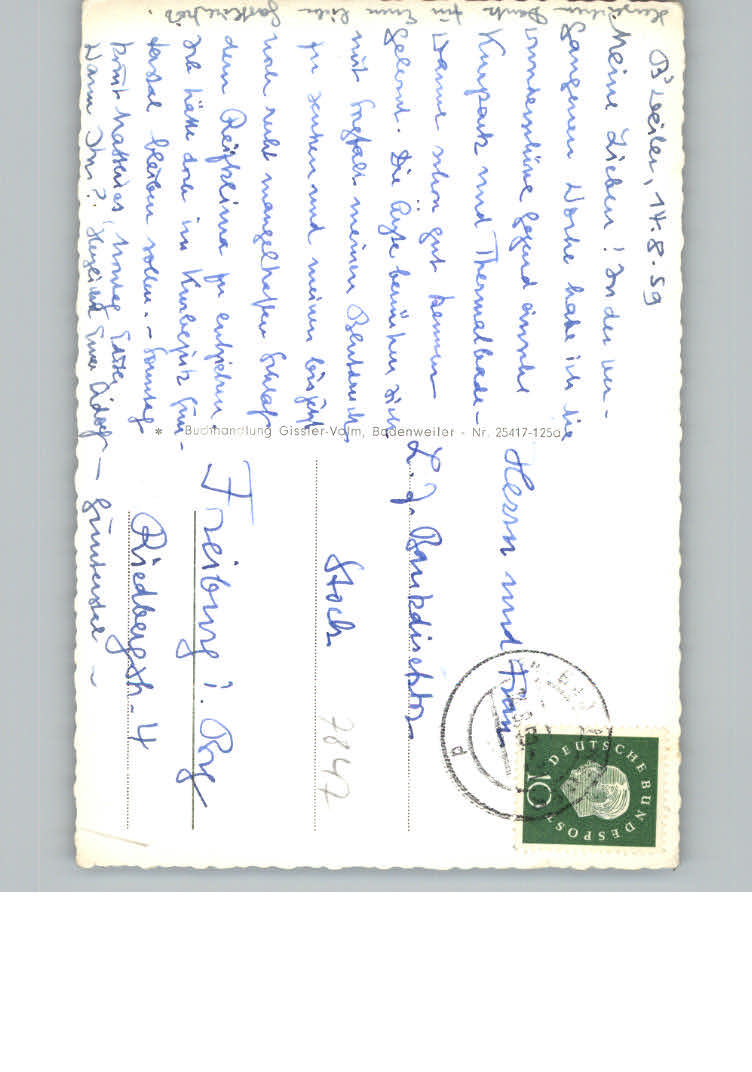 B'weiler, 14.8.59
Meine Lieben! In der ver-
gangenen Woche habe ich die
wunderschöne Gegend einschl.
Kurpark und Thermalbade-
wanne schon gut kennen
gelernt. Die Ärzte bemühen sich
mit Sorgfalt meinen Blutdruck
zu senken und meinen bisher
noch recht mangelhaften Schlaf
dem Reizklima zu entziehen.
Ich hätte doch im Kurbezirk Gün-
terstal bleiben sollen. – Sonntag
kommt Matthias, Montag
Wann Ihr? Herzlichst Euer Adolf
Herzlichen Dank für Euren lieben
* Buchhandlung Gissler-Valm, Badenweiler - Nr. 25417-125a
Herrn und Frau
Bankdirektor
Stock
7847
Freiburg i. Brg
Riedbergstr. 4
– Günterstal –
DEUTSCHE BUNDESPOST
10
b